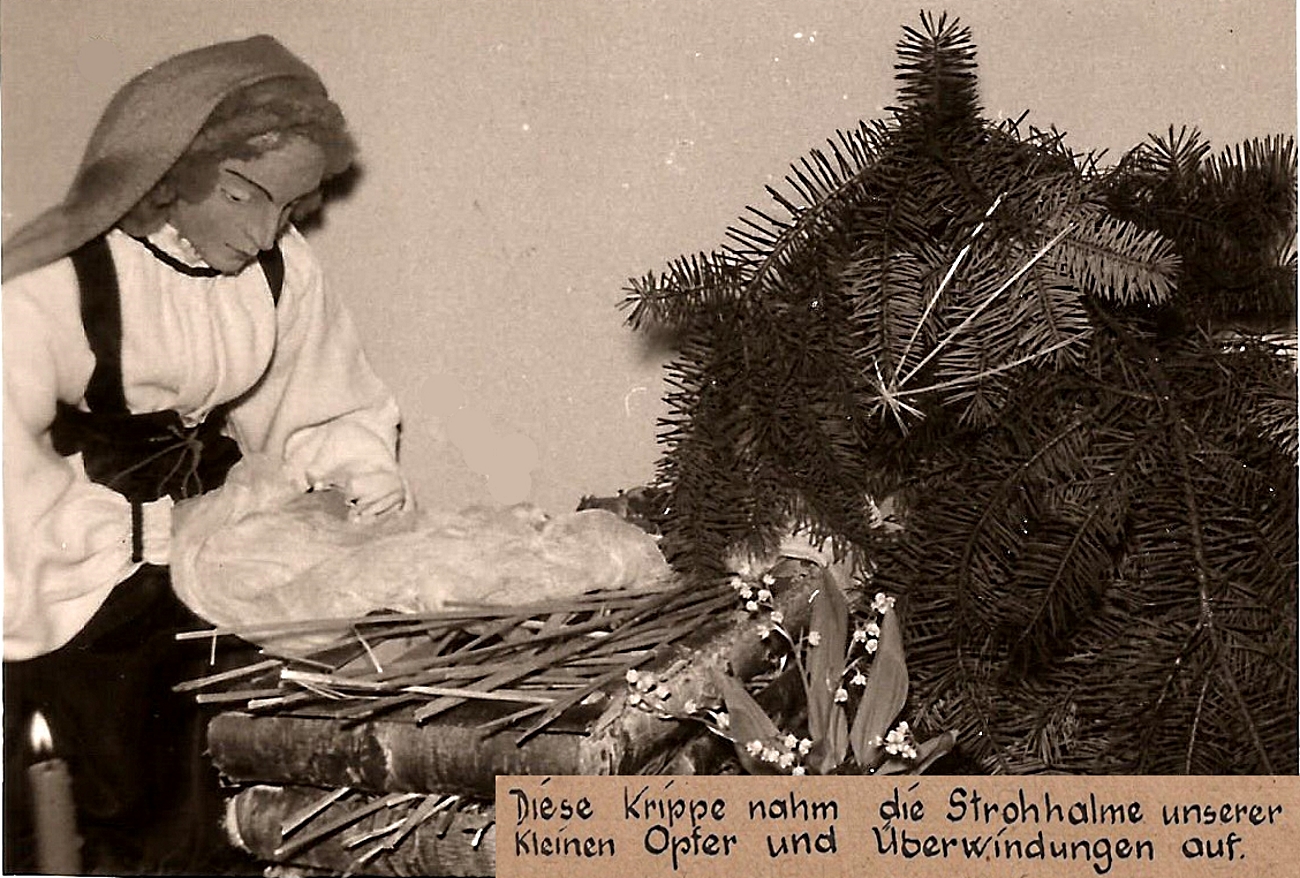 Diese Krippe nahm die Strohhalme unserer
kleinen Opfer und Überwindungen auf.